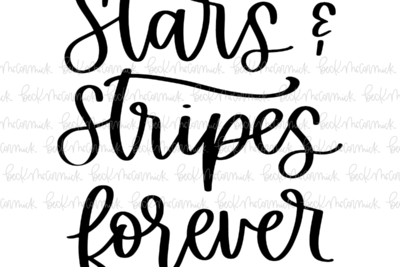 Stars &
Stripes
forever